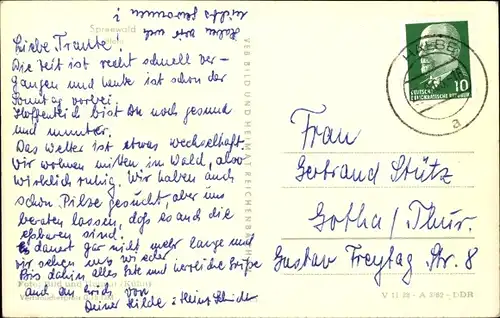 Spreewald
Liebe Traute!
Die Zeit ist recht schnell ver-
gangen und heute ist schon der
Sonntag vorbei.
Hoffentlich bist Du noch gesund
und munter.
Das Wetter ist etwas wechselhaft.
Wir wohnen mitten im Wald, also
wirklich ruhig. Wir haben auch
schon Pilze gesucht, aber uns
beraten lassen, daß es auch die
eßbaren sind!
Es dauert gar nicht mehr lange und
wir sehen uns wieder
Bis dahin alles Gute und herzliche Grüße
auch an Erich von
Deiner Hilde + Heinz
haben wir noch
nichts gewonnen
VEB BILD UND HEIMAT REICHENBACH
DEUTSCHE
DEMOKRATISCHE REPUBLIK
10
a
Frau
Gertrand Stütz
Gotha/Thür.
Gustav Freytag Str. 8
Foto: Bild und Heimat
V 11 28 - A 3/62 - DDR